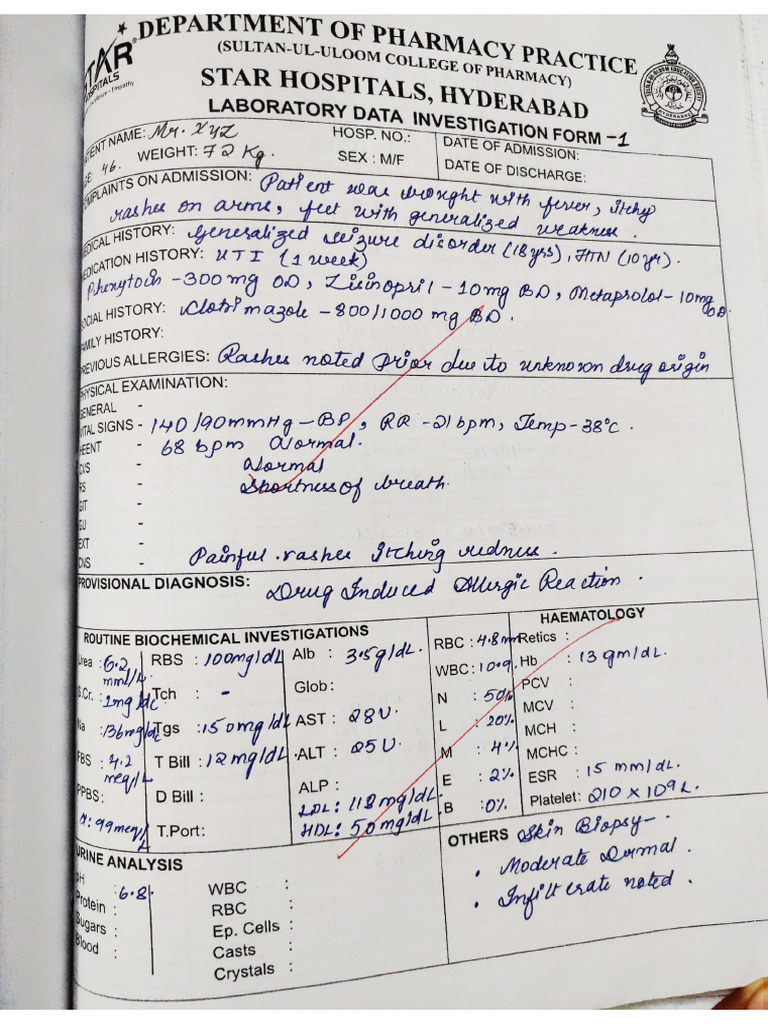 DEPARTMENT OF PHARMACY PRACTICE
(SULTAN-UL-ULOOM COLLEGE OF PHARMACY)
STAR HOSPITALS, HYDERABAD
LABORATORY DATA INVESTIGATION FORM -1
STAR
HOSPITALS
PATIENT NAME: Mr. XYZ HOSP. NO.: DATE OF ADMISSION:
AGE: 46. WEIGHT: 72 Kg. SEX : M/F DATE OF DISCHARGE:
COMPLAINTS ON ADMISSION: Patient was brought with fever, itchy
rashes on arms, feet with generalized weakness.
MEDICAL HISTORY: Generalized seizure disorder (18yrs), HTN (10yr).
MEDICATION HISTORY: UTI (1 week)
Phenytoin - 300 mg OD, Lisinopril - 10mg BD, Metaprolol - 10mg OD.
SOCIAL HISTORY: Clotrimazole - 800/1000 mg BD.
FAMILY HISTORY:
PREVIOUS ALLERGIES: Rashes noted prior due to unknown drug origin
PHYSICAL EXAMINATION:
GENERAL -
VITAL SIGNS - 140/90mmHg - BP, RR - 21 bpm, Temp - 38°C.
HEENT - 68 bpm Normal.
CVS - Normal
RS - Shortness of breath.
GIT -
GU -
EXT -
CNS - Painful rashes itching redness.
PROVISIONAL DIAGNOSIS: Drug Induced Allergic Reaction.
ROUTINE BIOCHEMICAL INVESTIGATIONS
Urea : 6.2 mml/L
S.Cr. : 1mg/dc
Na : 136mg/dc
FBS : 4.2 meq/L
PPBS:
: 99meq/L
RBS : 100mg/dL
Tch : -
Tgs : 150mg/dL
T Bill : 12 mg/dL
D Bill :
T.Port:
Alb : 3.5g/dL.
Glob:
AST : 28U
ALT : 25 U
ALP :
LDL: 118 mg/dL.
HDL: 50 mg/dL.
HAEMATOLOGY
RBC : 4.8 mm
WBC : 10.9
N : 50%
L : 20%
M : 4%
E : 2%
B : 0%
Retics :
Hb : 13 gm/dL
PCV :
MCV :
MCH :
MCHC :
ESR : 15 mm/dL.
Platelet: 210 x 109 L.
URINE ANALYSIS
pH : 6.8
Protein :
Sugars :
Blood :
WBC :
RBC :
Ep. Cells :
Casts :
Crystals :
OTHERS Skin Biopsy -
• Moderate Dermal
• Infilterate noted.